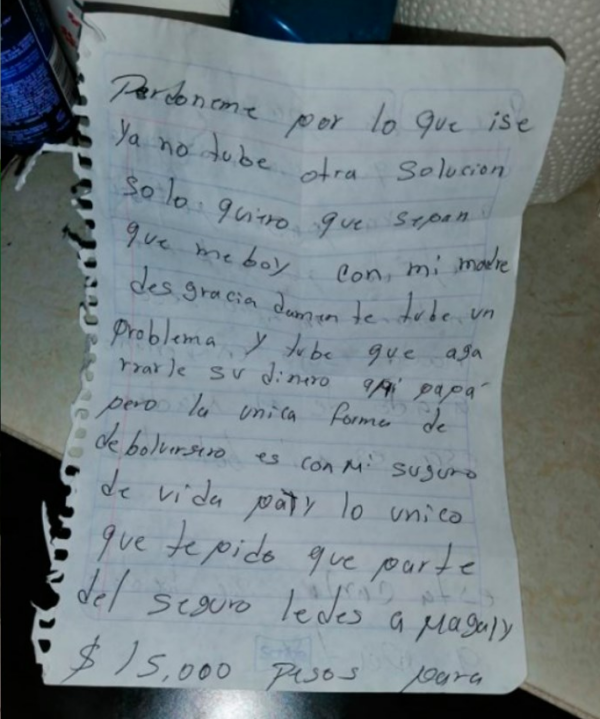 Perdoneme por lo que ise
Ya no tube otra solucion
solo quiero que sepan
que me boy con mi madre
desgraciadamente tube un
problema y tube que aga
rrarle su dinero a mi papá
pero la unica forma de
debolverselo es con mi suguro
de vida paty lo unico
que te pido que parte
del seguro ledes a Magaly
$ 15,000 pesos para